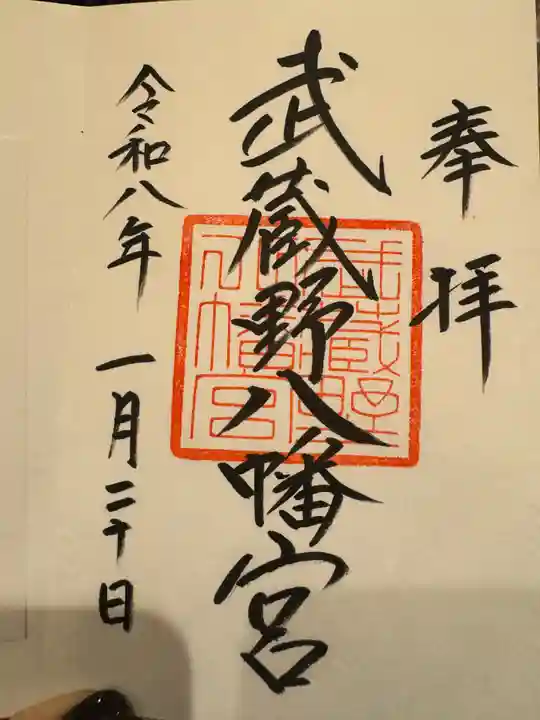 奉拝
武蔵野八幡宮
武蔵野八幡宮
令和八年 一月二十日